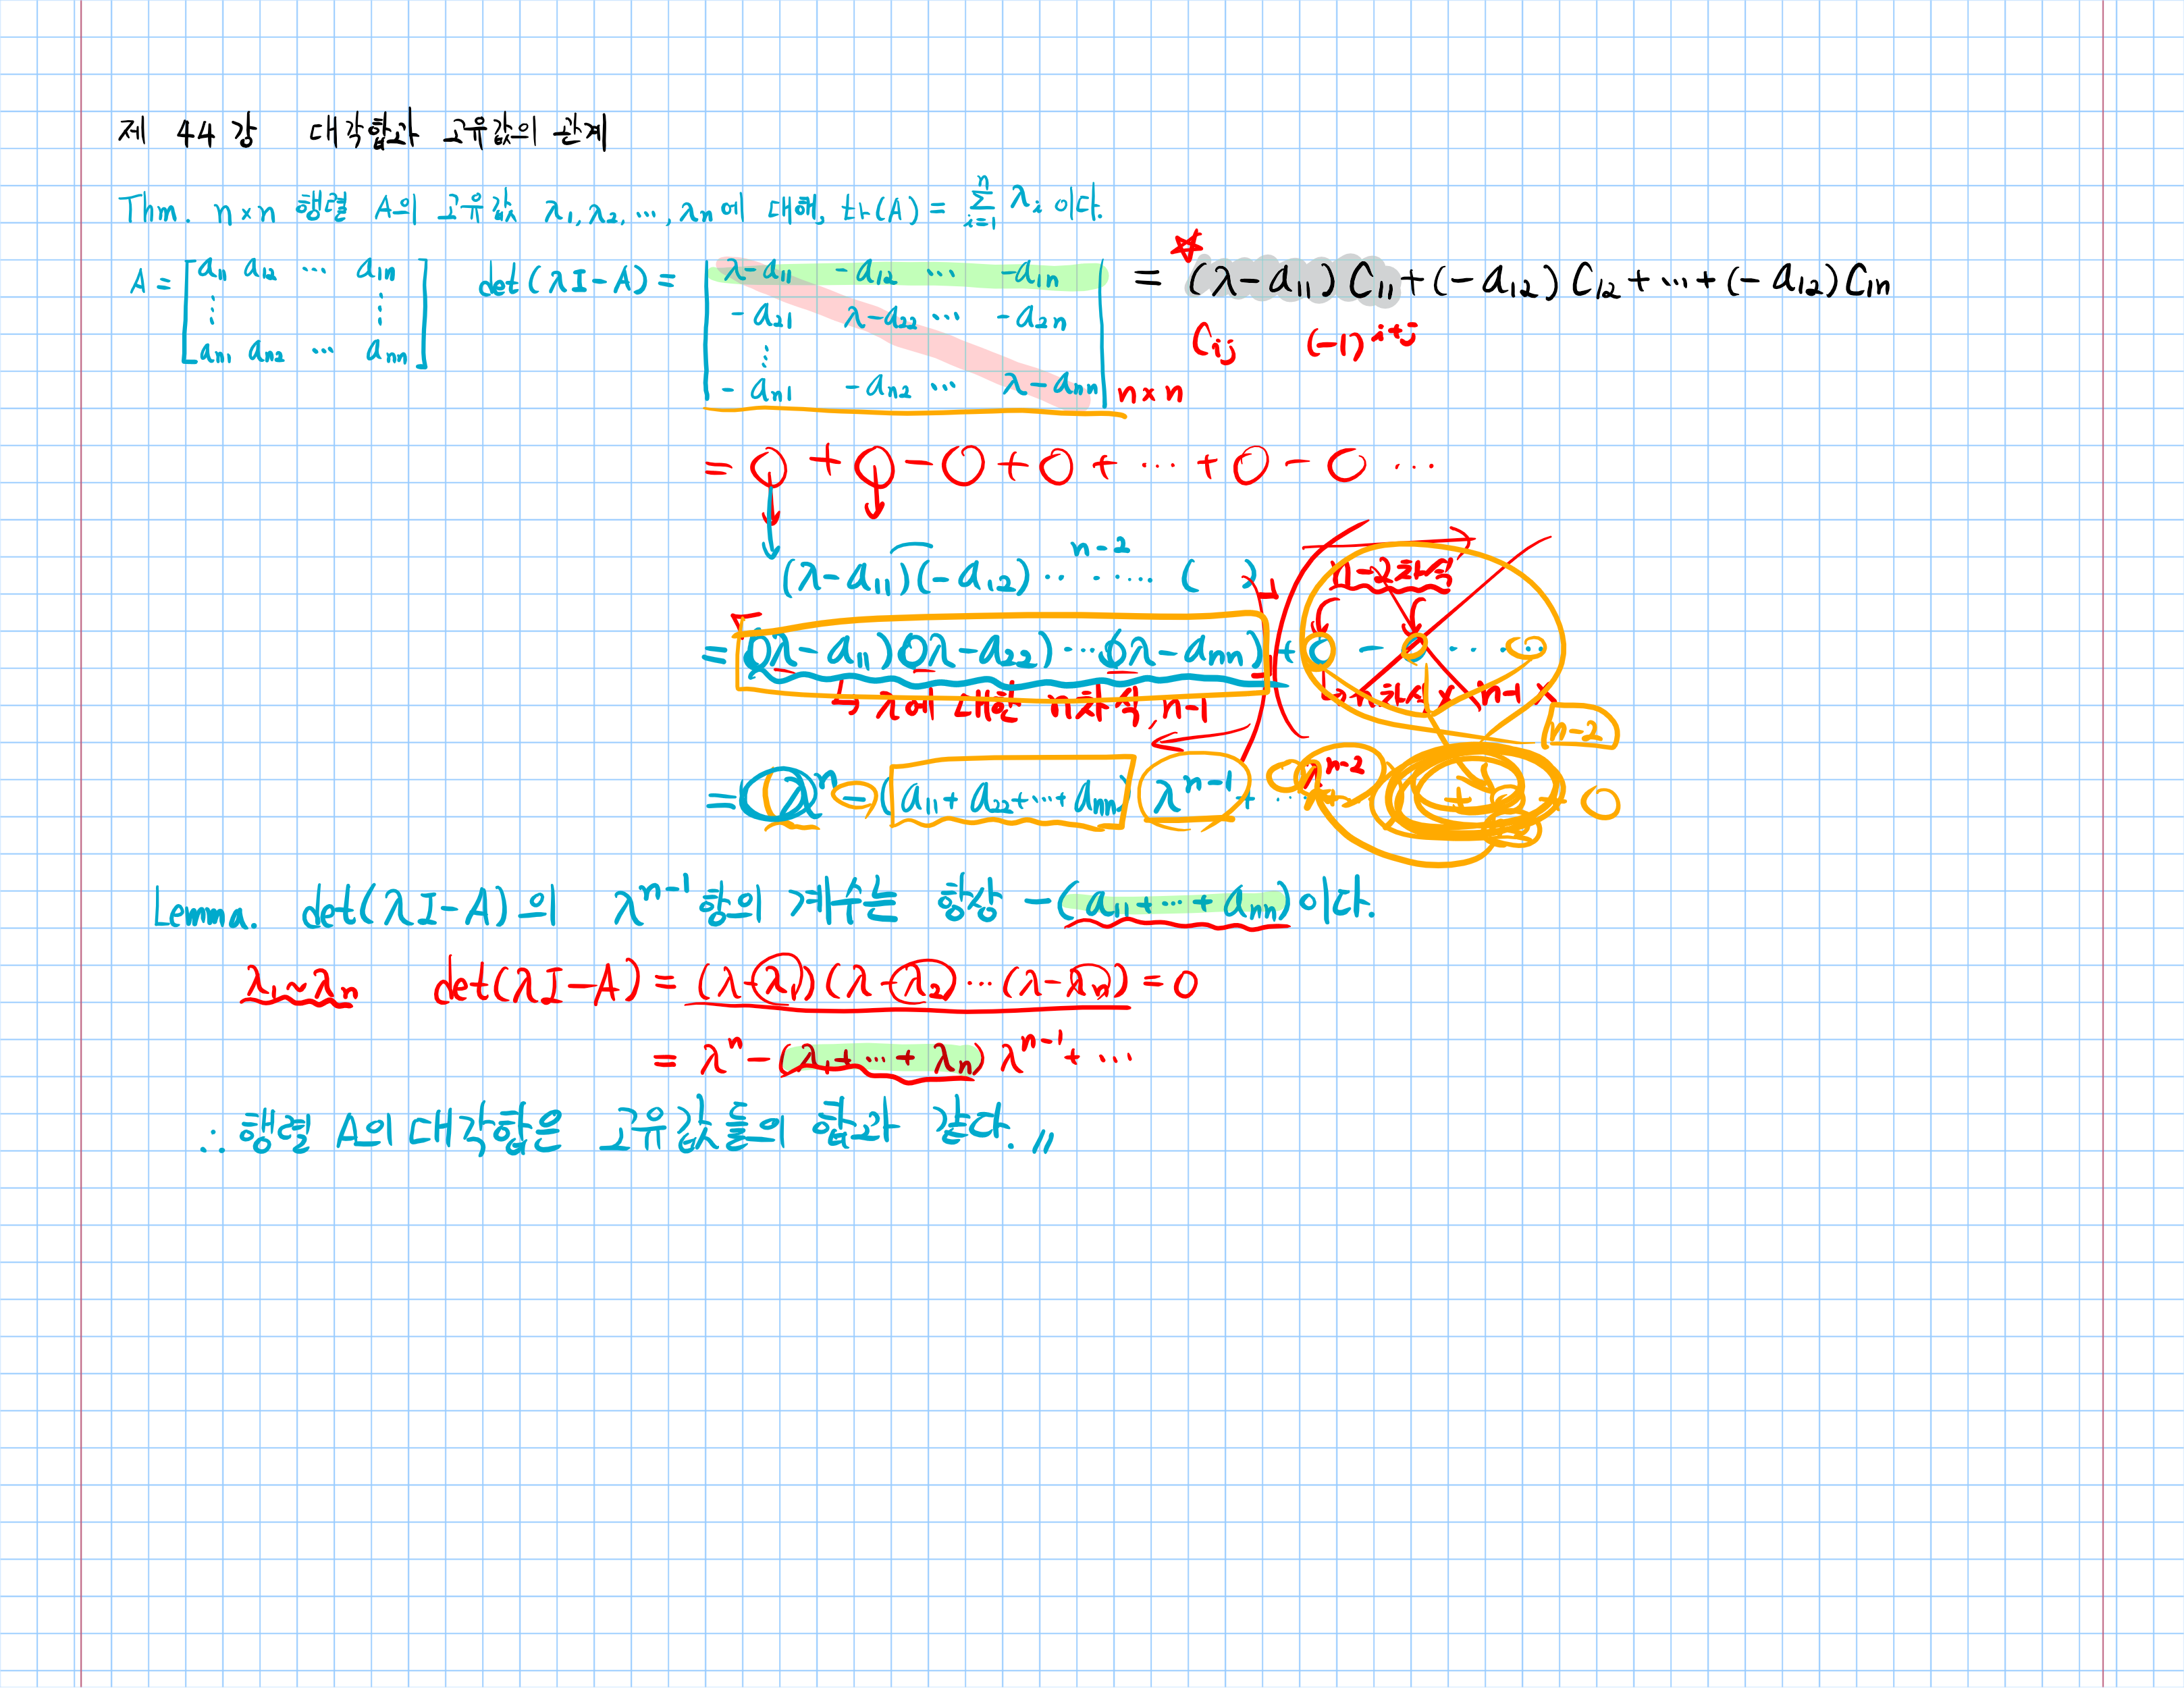 제 44 강 대각합과 고유값의 관계
Thm. n×n 행렬 A의 고유값 λ₁, λ₂, ⋯, λₙ에 대해, tr(A) = Σ_{i=1}^{n} λᵢ 이다.
A = [a₁₁ a₁₂ ⋯ a₁ₙ
⋮ ⋮
aₙ₁ aₙ₂ ⋯ aₙₙ]
det(λI-A) = | λ-a₁₁ -a₁₂ ⋯ -a₁ₙ
-a₂₁ λ-a₂₂ ⋯ -a₂ₙ
⋮
-aₙ₁ -aₙ₂ ⋯ λ-aₙₙ | n×n
= ☆ (λ-a₁₁) C₁₁ + (-a₁₂) C₁₂ + ⋯ + (-a₁₂) C₁ₙ
C_{ij} (-1)^{i+j}
= ○ + ○ - ○ + ○ + ⋯ + ○ - ○ ⋯
n-2
(λ-a₁₁)(-a₁₂) ⋯ ⋯ ( )
n-2차식
= (λ-a₁₁)(λ-a₂₂) ⋯ (λ-aₙₙ) + ○ - ○ ⋯
↳ λ에 대한 n차식, n-1
n차식× n-1 ×
n-2
= λⁿ - (a₁₁ + a₂₂ + ⋯ + aₙₙ) λ^{n-1} + ⋯ λ^{n-2} + ○
Lemma. det(λI-A)의 λ^{n-1} 항의 계수는 항상 -(a₁₁ + ⋯ + aₙₙ)이다.
λ₁~λₙ det(λI-A) = (λ-λ₁)(λ-λ₂) ⋯ (λ-λₙ) = 0
= λⁿ - (λ₁ + ⋯ + λₙ) λ^{n-1} + ⋯
∴ 행렬 A의 대각합은 고유값들의 합과 같다. //